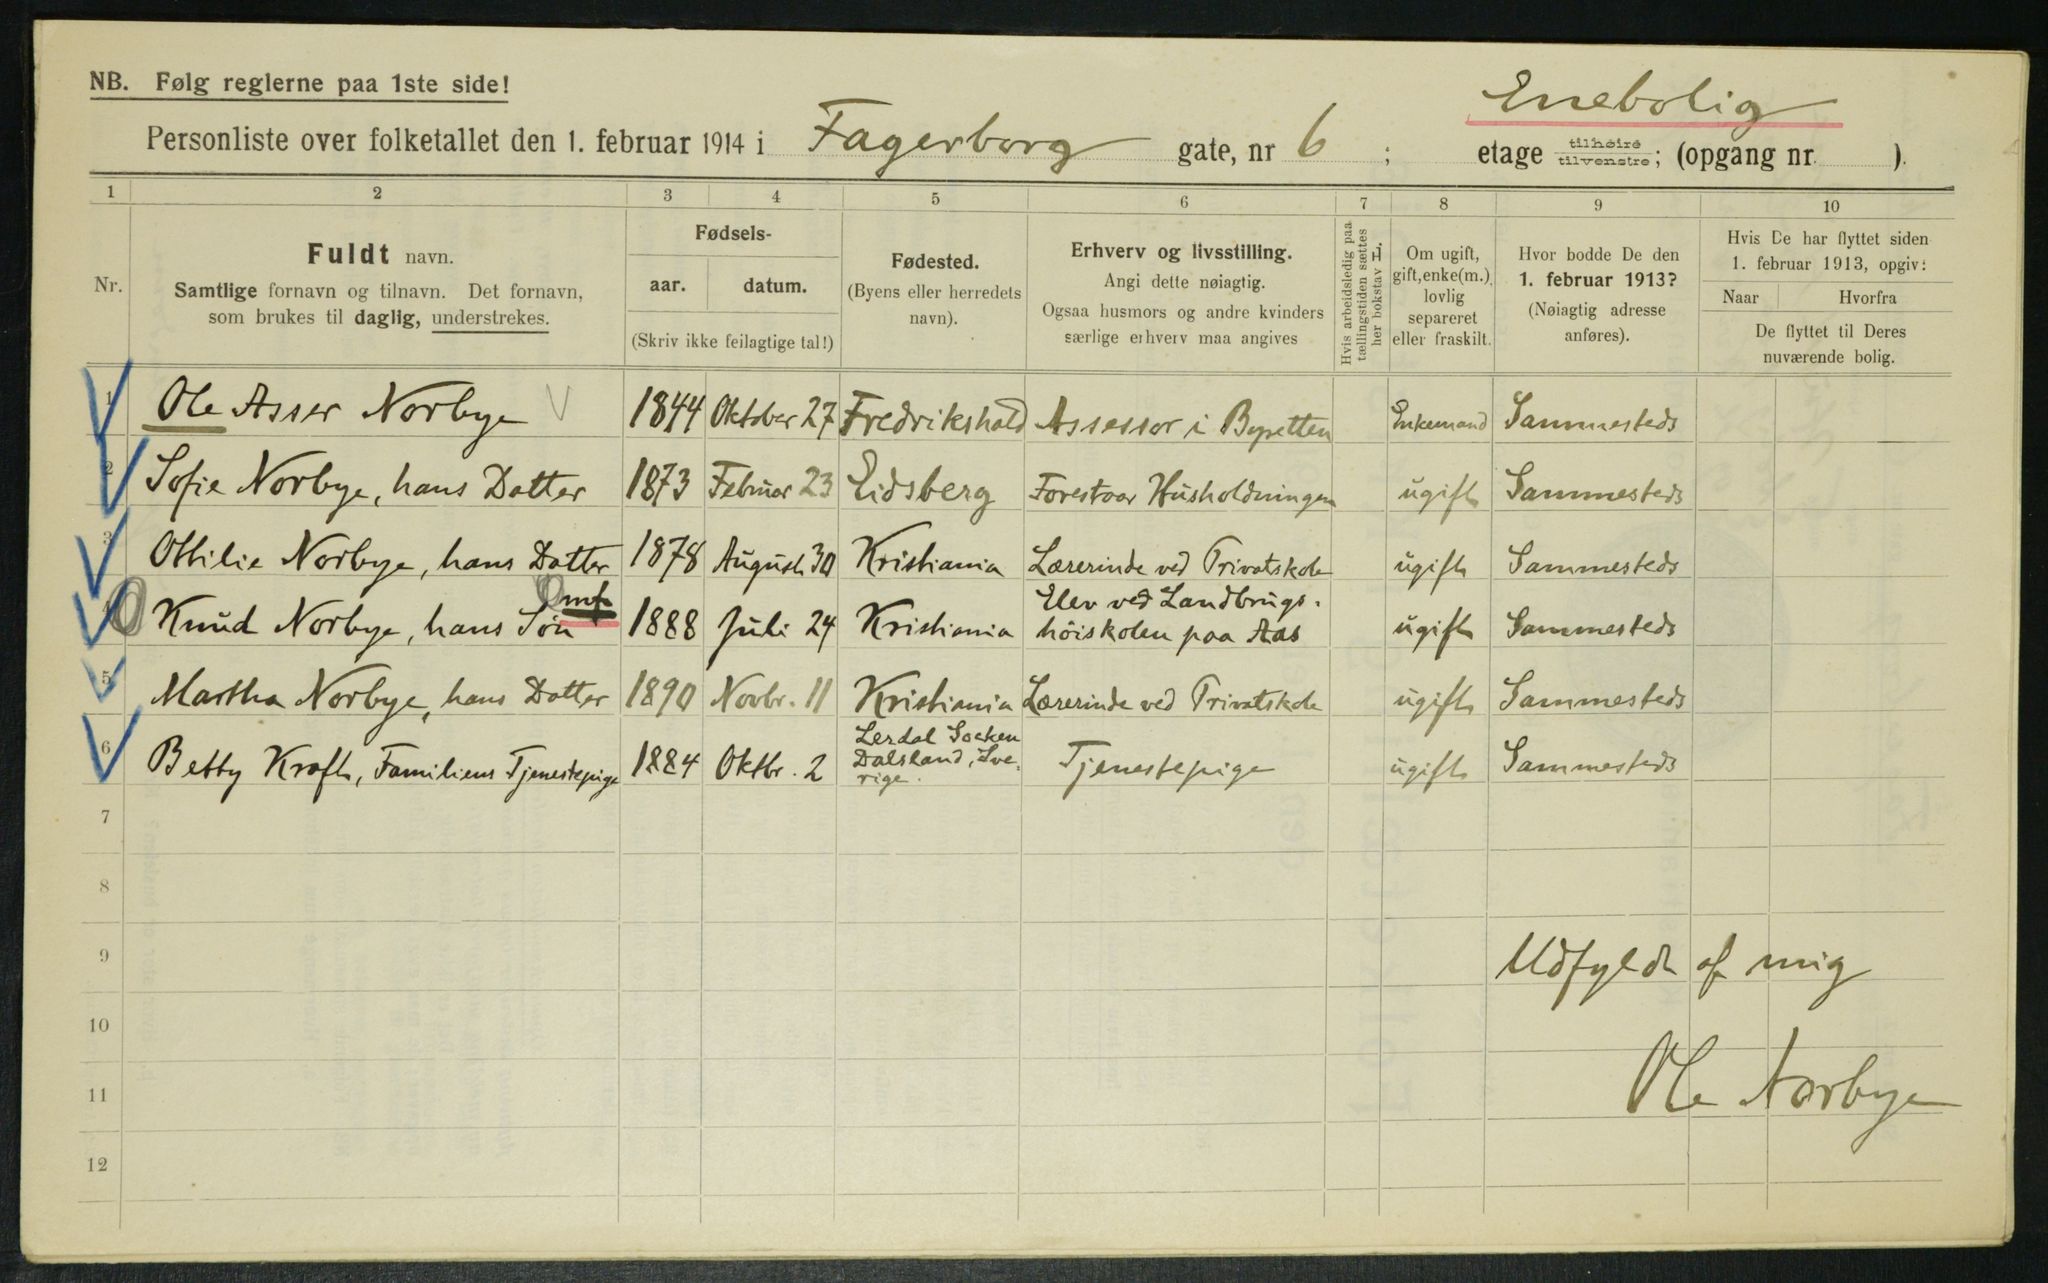 NB. Følg reglerne paa 1ste side!
Enebolig
Personliste over folketallet den 1. februar 1914 i Fagerborg gate, nr 6 ; etage tilhøire tilvenstre; (opgang nr. ).
1 2 3 4 5 6 7 8 9 10
Nr.
Fuldt navn.
Samtlige fornavn og tilnavn. Det fornavn,
som brukes til daglig, understrekes.
Fødsels-
aar. datum.
(Skriv ikke feilagtige tal!)
Fødested.
(Byens eller herredets
navn).
Erhverv og livsstilling.
Angi dette nøiagtig.
Ogsaa husmors og andre kvinders
særlige erhverv maa angives
Hvis arbeidsledig paa
tællingstiden sættes
her bokstav L.
Om ugift,
gift, enke(m.),
lovlig
separeret
eller fraskilt.
Hvor bodde De den
1. februar 1913?
(Nøiagtig adresse
anføres).
Hvis De har flyttet siden
1. februar 1913, opgiv:
Naar Hvorfra
De flyttet til Deres
nuværende bolig.
1 Ole Asser Norbye 1844 Oktober 27 Fredrikshald Assessor i Byretten Enkemand Sammesteds
2 Sofie Norbye, hans Datter 1873 Februar 23 Eidsberg Forestaar Husholdningen ugift Sammesteds
3 Ottilie Norbye, hans Datter 1878 August 30 Kristiania Lærerinde ved Privatskole ugift Sammesteds
4 Knud Norbye, hans Søn 1888 Juli 24 Kristiania Elev ved Landbrugs-
høiskolen paa Aas ugift Sammesteds
5 Martha Norbye, hans Datter 1890 Novbr. 11 Kristiania Lærerinde ved Privatskole ugift Sammesteds
6 Betty Kraft, Familiens Tjenestepige 1884 Oktbr. 2 Lerdal Socken
Dalsland, Sve-
rige. Tjenestepige ugift Sammesteds
7
8
9 Udfyldt af mig
10
11 Ole Norbye
12